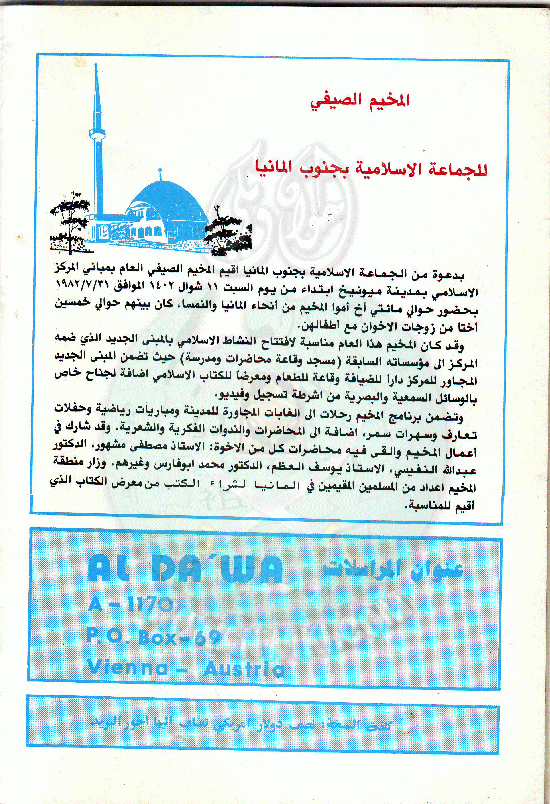 المخيم الصيفي
للجماعة الاسلامية بجنوب المانيا
بدعوة من الجماعة الاسلامية بجنوب المانيا اقيم المخيم الصيفي العام بمباني المركز
الاسلامي بمدينة ميونيخ ابتداء من يوم السبت ١١ شوال ١٤٠٢ الموافق ١٩٨٢/٧/٣١
بحضور حوالي مائتي أخ أموا المخيم من أنحاء المانيا والنمسا، كان بينهم حوالي خمسين
أختا من زوجات الاخوان مع اطفالهن.
وقد كان المخيم هذا العام مناسبة لافتتاح النشاط الاسلامي بالمبنى الجديد الذي ضمه
المركز الى مؤسساته السابقة (مسجد وقاعة محاضرات ومدرسة) حيث تضمن المبنى الجديد
المجاور للمركز داراً للضيافة وقاعة للطعام ومعرضاً للكتاب الاسلامي اضافة لجناح خاص
بالوسائل السمعية والبصرية من اشرطة تسجيل وفيديو.
وتضمن برنامج المخيم رحلات الى الغابات المجاورة للمدينة ومباريات رياضية وحفلات
تعارف وسهرات سمر، اضافة الى المحاضرات والندوات الفكرية والشعرية. وقد شارك في
اعمال المخيم والقى فيه محاضرات كل من الاخوة: الاستاذ مصطفى مشهور، الدكتور
عبدالله النفيسي، الاستاذ يوسف العظم، الدكتور محمد ابوفارس وغيرهم. وزار منطقة
المخيم اعداد من المسلمين المقيمين في المانيا لشراء الكتب من معرض الكتاب الذي
أقيم للمناسبة.
عنوان المراسلات
AL DA'WA
A – 1170
P.O. Box – 69
Vienna – Austria
نصف دولار امريكي اجور البريد